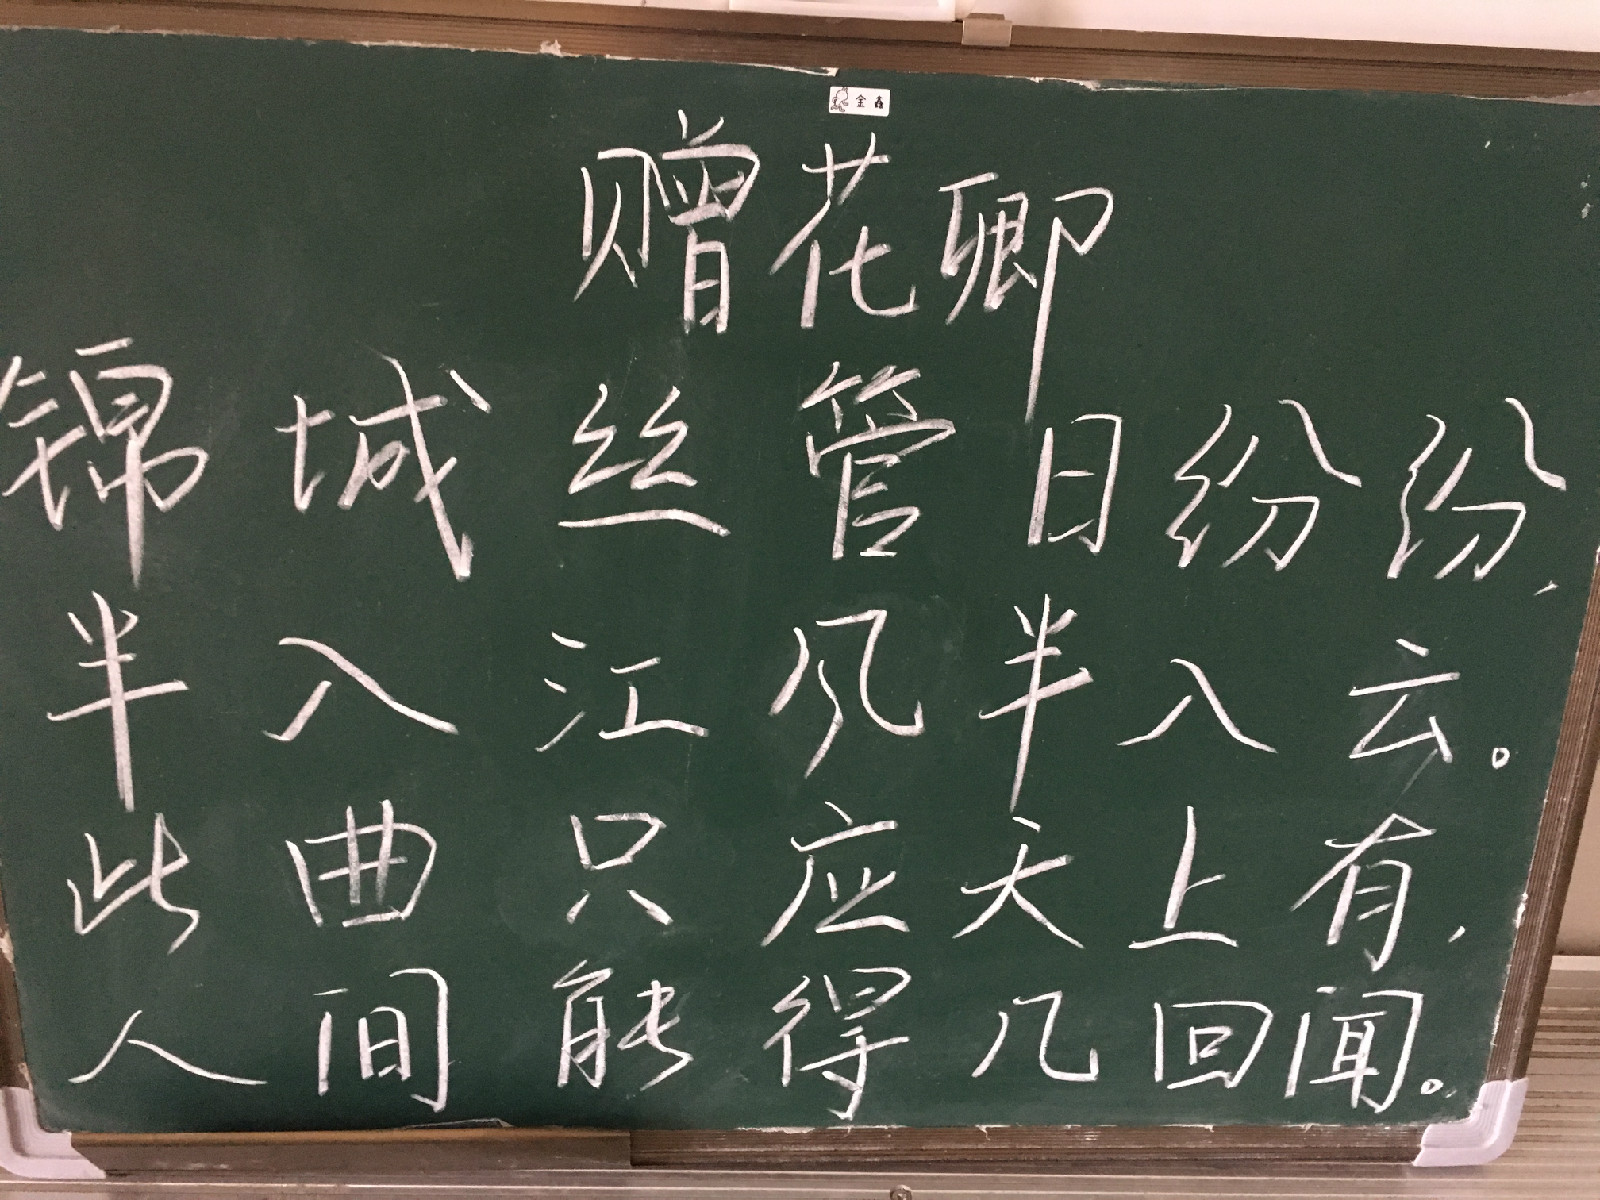 金鑫
赠花卿
锦城丝管日纷纷,
半入江风半入云。
此曲只应天上有,
人间能得几回闻。